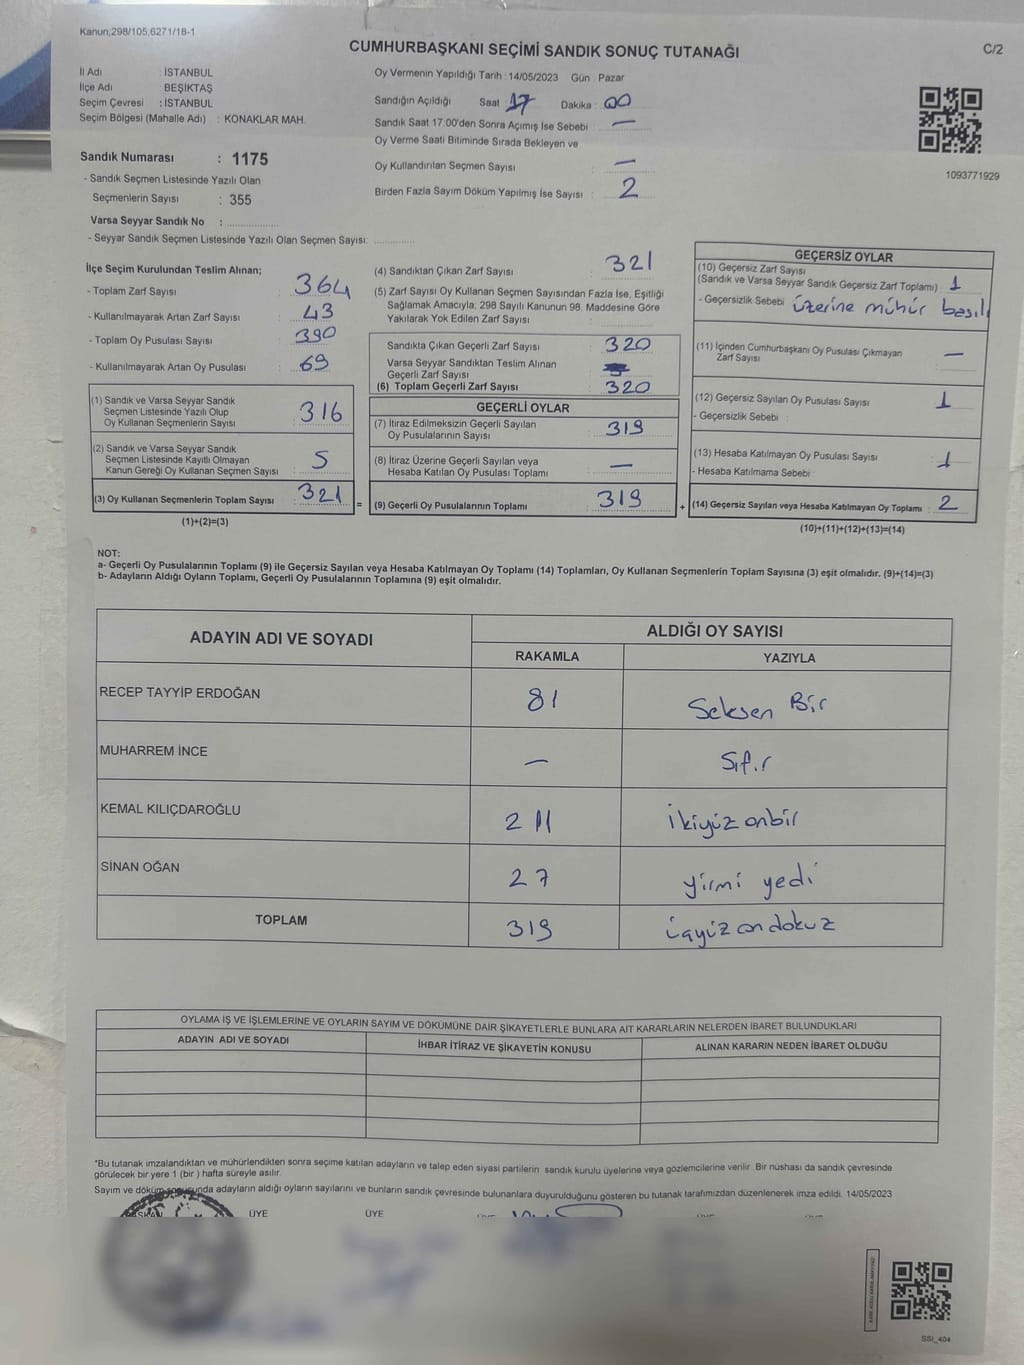 Kanun,298/105,6271/18-1
CUMHURBAŞKANI SEÇİMİ SANDIK SONUÇ TUTANAĞI
C/2
İl Adı : İSTANBUL
İlçe Adı : BEŞİKTAŞ
Seçim Çevresi : İSTANBUL
Seçim Bölgesi (Mahalle Adı) : KONAKLAR MAH.
Oy Vermenin Yapıldığı Tarih : 14/05/2023 Gün : Pazar
Sandığın Açıldığı Saat : 17 Dakika : 00
Sandık Saat 17:00'den Sonra Açımış İse Sebebi : —
Oy Verme Saati Bitiminde Sırada Bekleyen ve
Oy Kullandırılan Seçmen Sayısı : —
Birden Fazla Sayım Döküm Yapılmış İse Sayısı : 2
1093771929
Sandık Numarası : 1175
- Sandık Seçmen Listesinde Yazılı Olan
Seçmenlerin Sayısı : 355
Varsa Seyyar Sandık No :
- Seyyar Sandık Seçmen Listesinde Yazılı Olan Seçmen Sayısı:
İlçe Seçim Kurulundan Teslim Alınan;
- Toplam Zarf Sayısı : 364
- Kullanılmayarak Artan Zarf Sayısı : 43
- Toplam Oy Pusulası Sayısı : 390
- Kullanılmayarak Artan Oy Pusulası : 69
(1) Sandık ve Varsa Seyyar Sandık
Seçmen Listesinde Yazılı Olup
Oy Kullanan Seçmenlerin Sayısı : 316
(2) Sandık ve Varsa Seyyar Sandık
Seçmen Listesinde Kayıtlı Olmayan
Kanun Gereği Oy Kullanan Seçmen Sayısı : 5
(3) Oy Kullanan Seçmenlerin Toplam Sayısı : 321 =
(1)+(2)=(3)
(4) Sandıktan Çıkan Zarf Sayısı : 321
(5) Zarf Sayısı Oy Kullanan Seçmen Sayısından Fazla İse, Eşitliği
Sağlamak Amacıyla; 298 Sayılı Kanunun 98. Maddesine Göre
Yakılarak Yok Edilen Zarf Sayısı :
Sandıkta Çıkan Geçerli Zarf Sayısı : 320
Varsa Seyyar Sandıktan Teslim Alınan
Geçerli Zarf Sayısı :
(6) Toplam Geçerli Zarf Sayısı : 320
GEÇERLİ OYLAR
(7) İtiraz Edilmeksizin Geçerli Sayılan
Oy Pusulalarının Sayısı : 319
(8) İtiraz Üzerine Geçerli Sayılan veya
Hesaba Katılan Oy Pusulası Toplamı : —
(9) Geçerli Oy Pusulalarının Toplamı : 319 +
GEÇERSİZ OYLAR
(10) Geçersiz Zarf Sayısı
(Sandık ve Varsa Seyyar Sandık Geçersiz Zarf Toplamı) : 1
- Geçersizlik Sebebi : üzerine mühür basılı
(11) İçinden Cumhurbaşkanı Oy Pusulası Çıkmayan
Zarf Sayısı : —
(12) Geçersiz Sayılan Oy Pusulası Sayısı : 1
- Geçersizlik Sebebi :
(13) Hesaba Katılmayan Oy Pusulası Sayısı : 1
- Hesaba Katılmama Sebebi :
(14) Geçersiz Sayılan veya Hesaba Katılmayan Oy Toplamı : 2
(10)+(11)+(12)+(13)=(14)
NOT:
a- Geçerli Oy Pusulalarının Toplamı (9) ile Geçersiz Sayılan veya Hesaba Katılmayan Oy Toplamı (14) Toplamları, Oy Kullanan Seçmenlerin Toplam Sayısına (3) eşit olmalıdır. (9)+(14)=(3)
b- Adayların Aldığı Oyların Toplamı, Geçerli Oy Pusulalarının Toplamına (9) eşit olmalıdır.
ADAYIN ADI VE SOYADI
ALDIĞI OY SAYISI
RAKAMLA YAZIYLA
RECEP TAYYİP ERDOĞAN 81 Seksen Bir
MUHARREM İNCE — Sıfır
KEMAL KILIÇDAROĞLU 211 ikiyüz onbir
SİNAN OĞAN 27 yirmi yedi
TOPLAM 319 üçyüz on dokuz
OYLAMA İŞ VE İŞLEMLERİNE VE OYLARIN SAYIM VE DÖKÜMÜNE DAİR ŞİKAYETLERLE BUNLARA AİT KARARLARIN NELERDEN İBARET BULUNDUKLARI
ADAYIN ADI VE SOYADI İHBAR İTİRAZ VE ŞİKAYETİN KONUSU ALINAN KARARIN NEDEN İBARET OLDUĞU
*Bu tutanak imzalandıktan ve mühürlendikten sonra seçime katılan adayların ve talep eden siyasi partilerin sandık kurulu üyelerine veya gözlemcilerine verilir. Bir nüshası da sandık çevresinde
görülecek bir yere 1 (bir) hafta süreyle asılır.
Sayım ve döküm sonucunda adayların aldığı oyların sayılarını ve bunların sandık çevresinde bulunanlara duyurulduğunu gösteren bu tutanak tarafımızdan düzenlenerek imza edildi. 14/05/2023
BAŞKAN ÜYE ÜYE
SSI_404